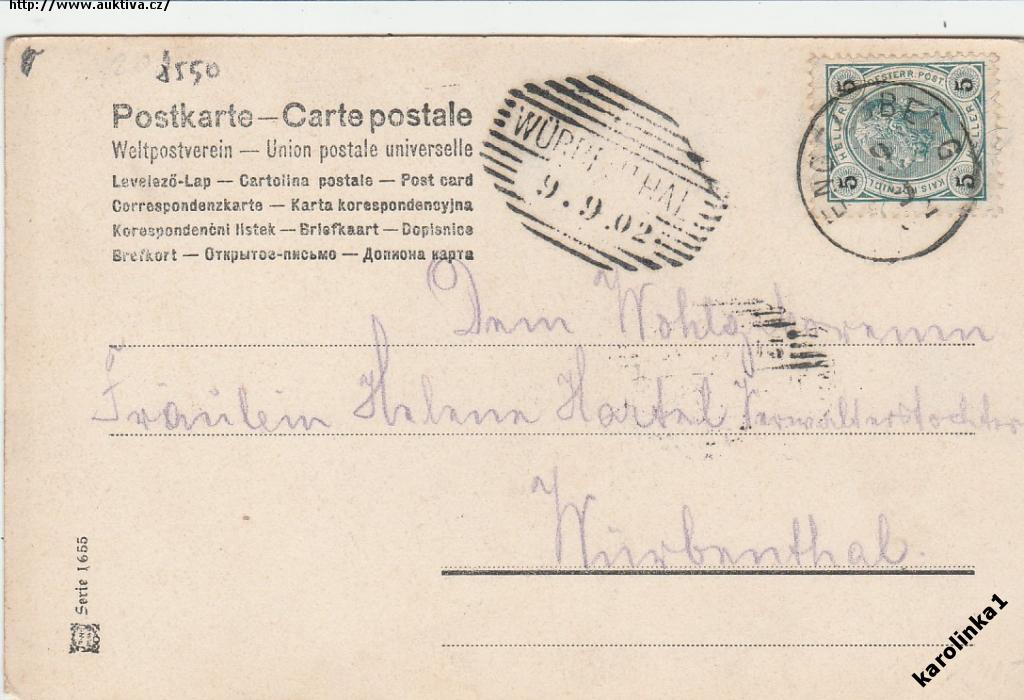 http://www.auktiva.cz/
8550
Postkarte — Carte postale
Weltpostverein — Union postale universelle
Levelező-Lap — Cartolina postale — Post card
Correspondenzkarte — Karta korespondencyjna
Korespondenční listek — Briefkaart — Dopisnice
Brefkort — Открытое-письмо — Дописна карта
WÜRBENTHAL
9.9.02
5 HELLER OESTERR. POST 5 HELLER
5 KAIS. KÖNIGL. 5
Dem Wohlgeborenen
Fräulein Helene Hartel Verwalterstochter
Würbenthal.
Serie 1655
karolinka1